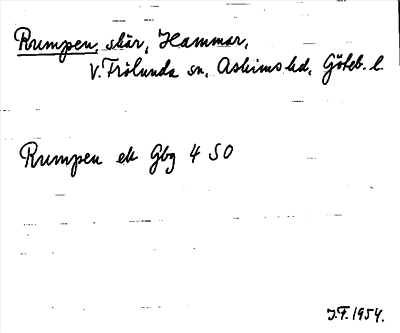 Rumpen, skär, Hammar,
V. Frölunda sn, Askims hd, Göteb. l.
Rumpen ek Gbg 4 SO
J.F. 1954.